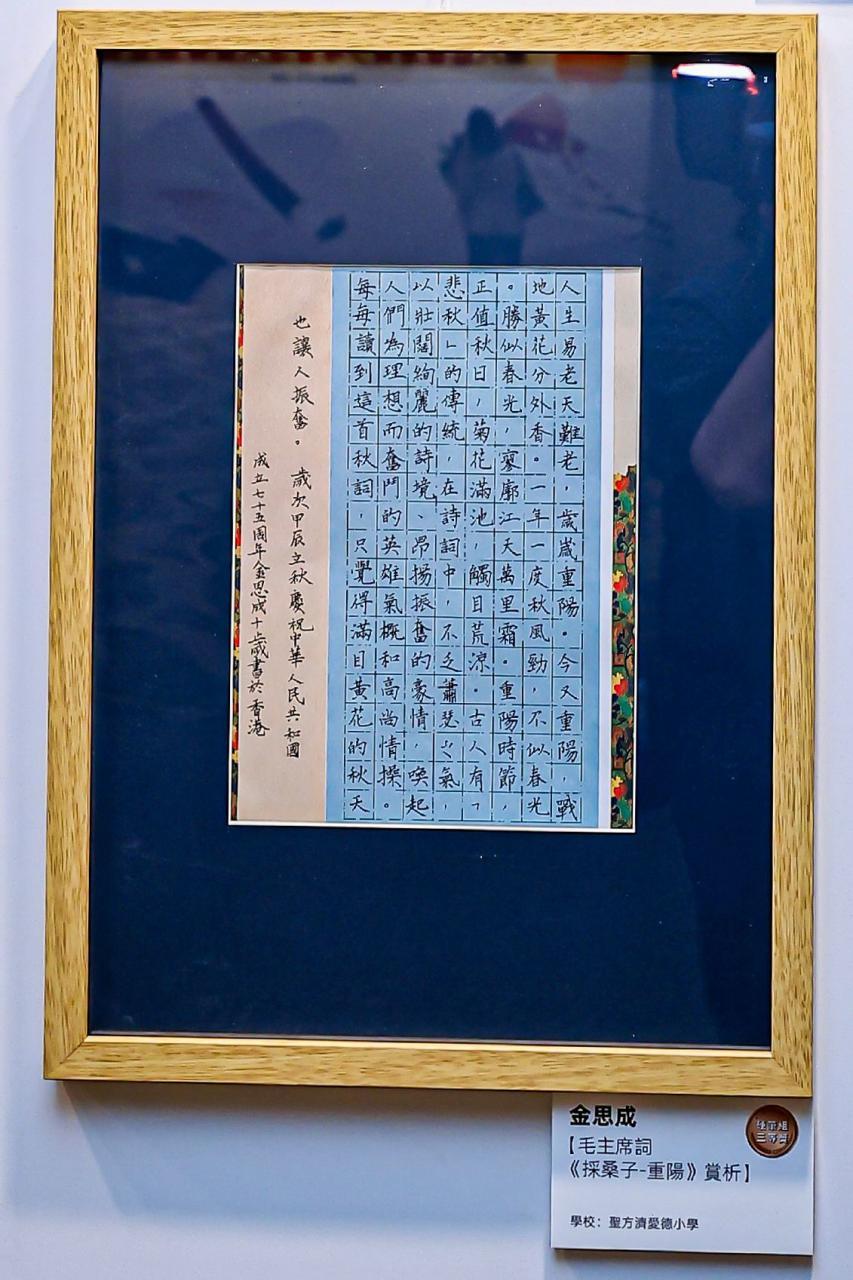 人生易老天難老，歲歲重陽。今又重陽，戰
地黃花分外香。一年一度秋風勁，不似春光
。勝似春光，寥廓江天萬里霜。重陽時節，
正值秋日，菊花滿池，觸目荒涼。古人有「
悲秋」的傳統，在詩詞中，不乏蕭瑟之氣，
以壯闊絢麗的詩境、昂揚振奮的豪情，喚起
人們為理想而奮鬥的英雄氣概和高尚情操。
每每讀到這首秋詞，只覺得滿目黃花的秋天
也讓人振奮。 歲次甲辰立秋慶祝中華人民共和國
成立七十五周年金思成十歲書於香港
金思成
【毛主席詞
《採桑子-重陽》賞析】
學校：聖方濟愛德小學
硬筆組
三等獎